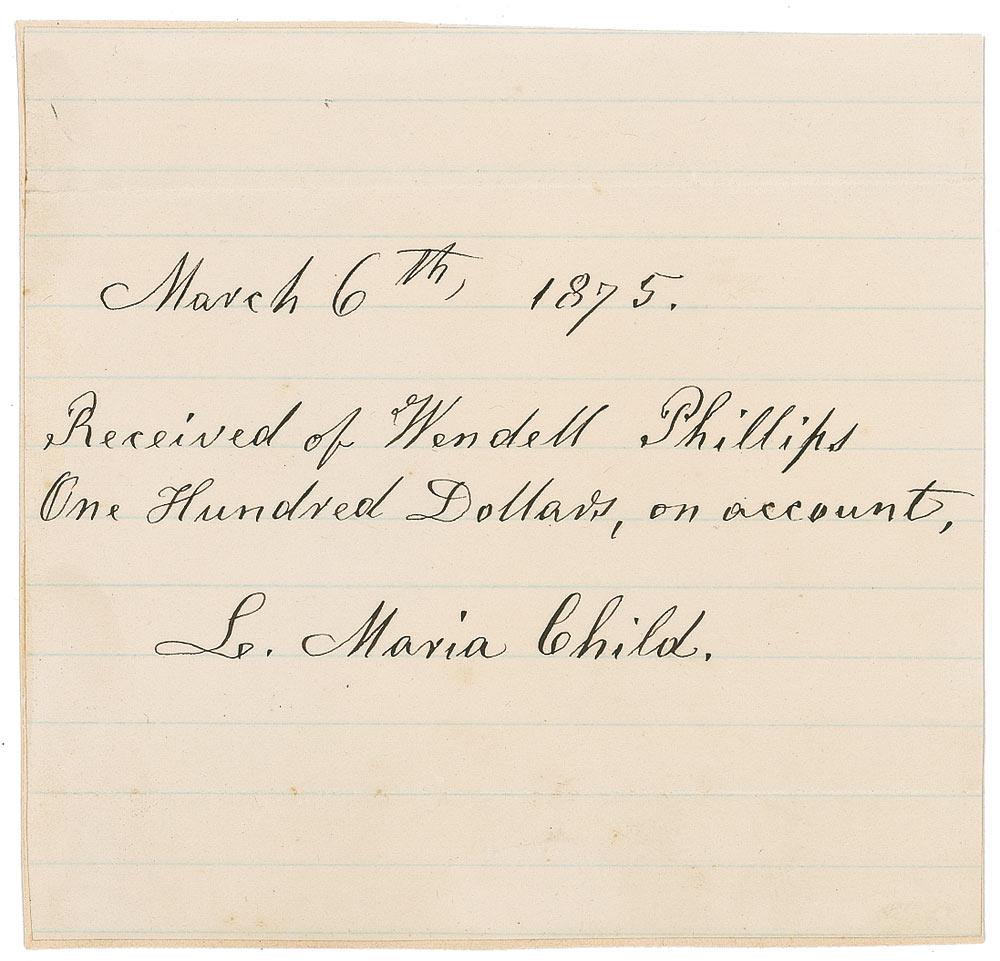 March 6th, 1875.
Received of Wendell Phillips
One Hundred Dollars, on account,
L. Maria Child.